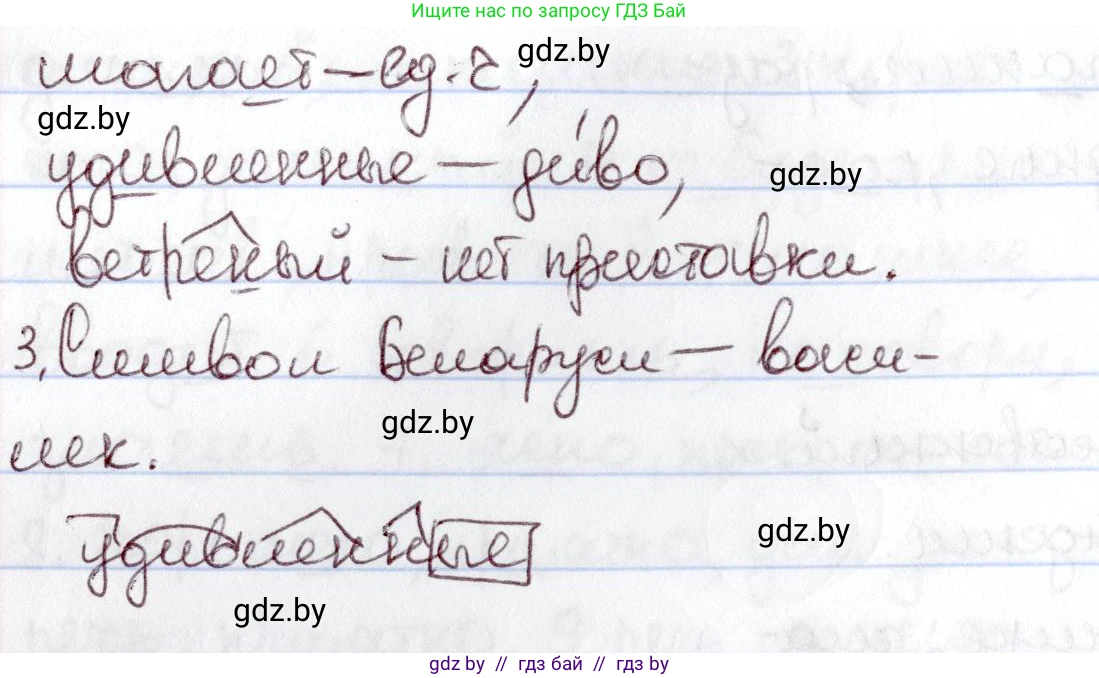 Ищите нас по запросу ГДЗ Бай
gdz.by
шагает – ед. ч.,
gdz.by
удивленные – ди́во,
gdz.by
ветреный – нет приставки.
3. Символ Беларуси – васи-
gdz.by
лек.
gdz.by
удивленные
gdz.by
gdz.by // гдз бай // гдз by